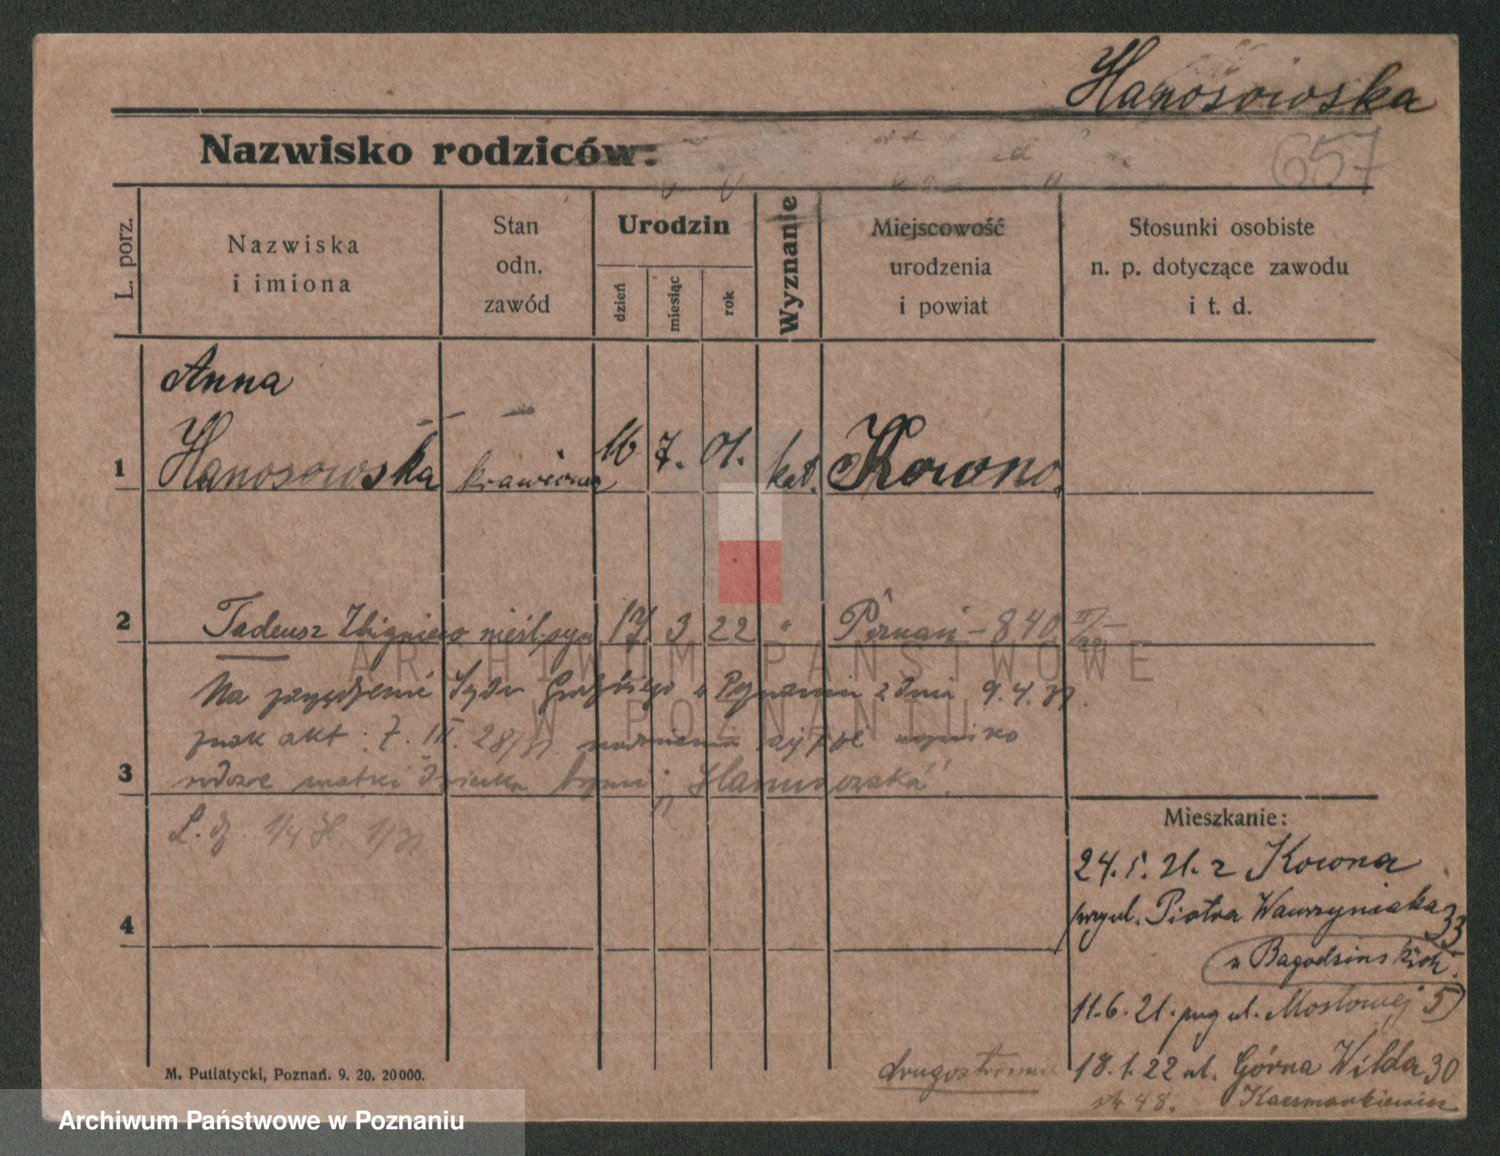 Hanosowska
Nazwisko rodziców:
657
L. porz.
Nazwiska
i imiona
Stan
odn.
zawód
Urodzin
dzień
miesiąc
rok
Wyznanie
Miejscowość
urodzenia
i powiat
Stosunki osobiste
n. p. dotyczące zawodu
i t. d.
Anna
1 Hanosowska krawcowa 16 7. 01. kat. Kowno.
2 Tadeusz Zbigniew nieśl. syn 17. 3 22 " Poznań - 840
Na Sądu Grodzkiego w Poznaniu z dnia 9.4.31.
znak akt: 7. III. 28/31
3 matki dziecka brzmi "Hanusowska".
L. dz. 1/4 H. 1/31
4
Mieszkanie:
24. 5. 21. z Kowna
przy ul. Piotra Wawrzyniaka 33
u Bagodzińskich.
11.6.21. przy ul. Mostowej 5
18.1.22 ul. Górna Wilda 30
48. Kaczmarkiewicz
drugostronnie
M. Putiatycki, Poznań. 9. 20. 20000.
ARCHIWUM PAŃSTWOWE
W POZNANIU
Archiwum Państwowe w Poznaniu